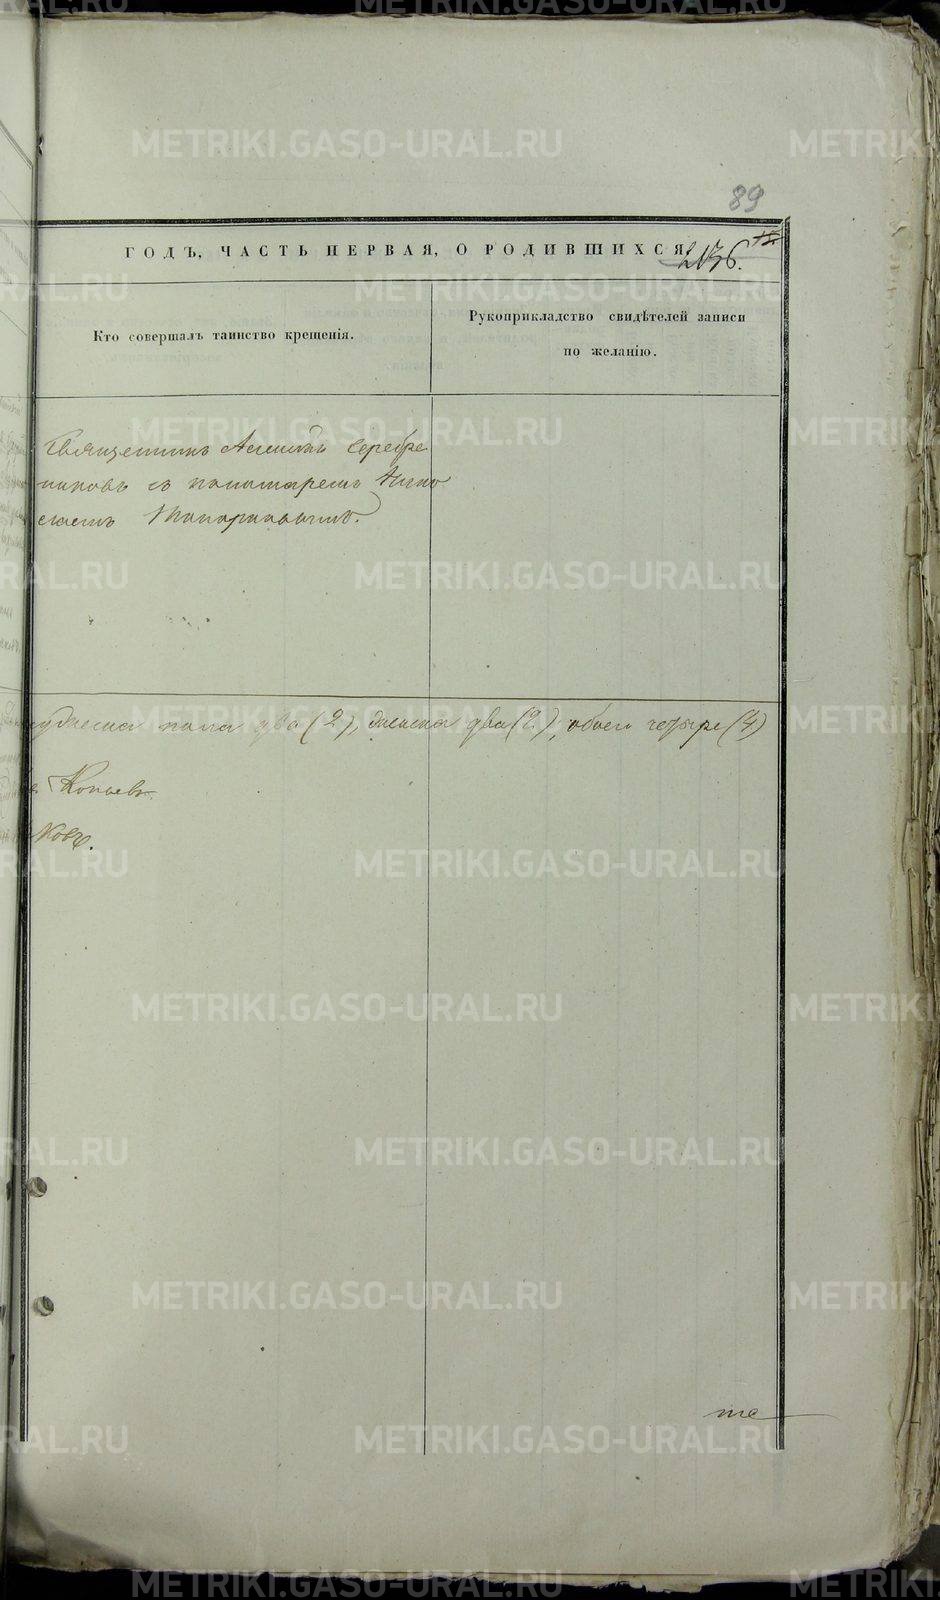 89
ГОДЪ, ЧАСТЬ ПЕРВАЯ, О РОДИВШИХСЯ
Кто совершалъ таинство крещенія.
Рукоприкладство свидѣтелей записи
по желанію.
Священникъ Алексѣй Серебре
никовъ съ пономаремъ
Топорковымъ.
мужеска пола два (2), женска два (2), обоего четыре (4)
Копьевъ
ковъ.
METRIKI.GASO-URAL.RU